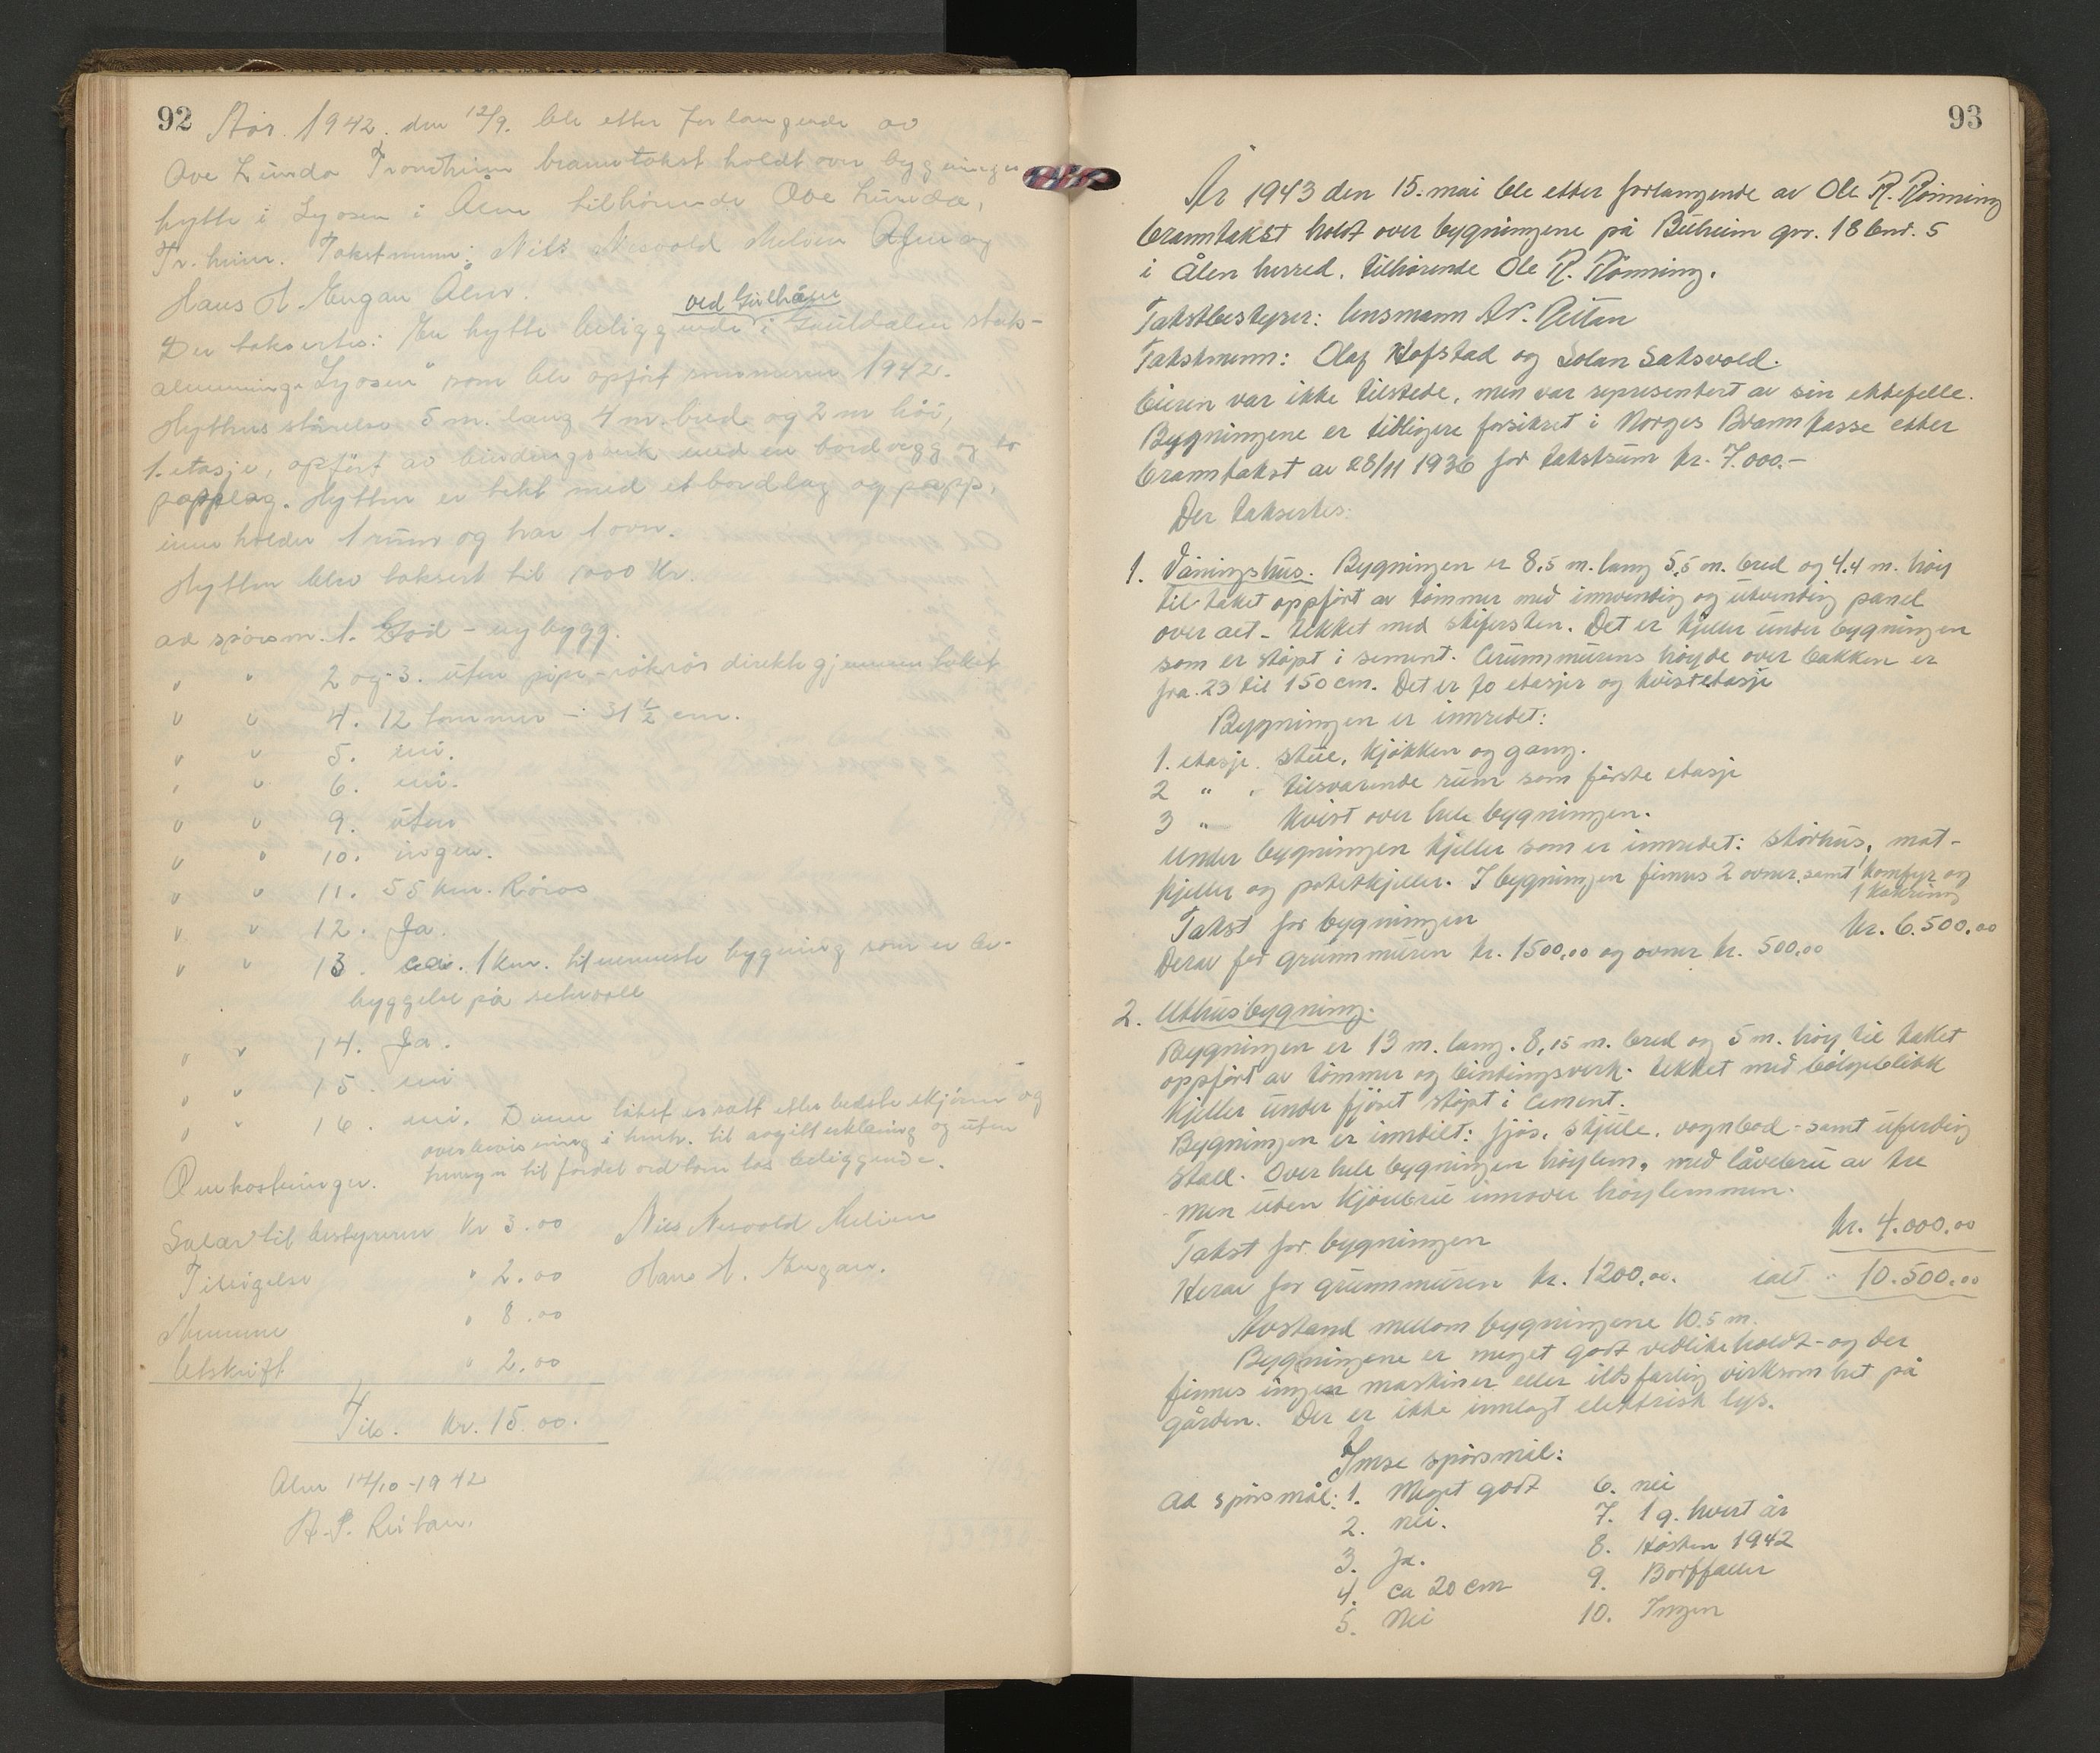 92 Aår. 1942. den 12/9. ble etter forlangende av
Ove Lunda Trondheim branntakst holdt over bygninger
hytte i Lyosen i Ålen tilhørende Ove Lunda,
Tr. heim. Takstmenn: Nils Nesvold Melien Ålen og
Hans H. Engan Ålen.
ved
Der taksertes: En hytte beliggende i Gauldalen stats-
alminninge "Lyosen" som ble opført sommeren 1942.
Hyttens störelse 5 m. lang 4 m. bred og 2 m höi,
1. etasje, opført av bindingsverk med en bordvegg og to
papplag. Hytten er tekt med et bordlag og papp,
inne holder 1 rum og har 1 ovn.
Hytten blev taksert til 1000 Kr.
ad spörsm. 1. God - nybygg.
" " 2 og 3. uten pipe - rökrör direkte gjennem taket
" " 4. 12 tommer - 31 1/2 cm.
" " 5. nei.
" " 6. nei.
" " 9. uten
" " 10. ingen.
" " 11. 55 km. Röros
" " 12. Ja.
" " 13. ca. 1 km. til nermeste bygning som er be-
byggelse på setervoll
" " 14. Ja.
" " 15. nei
" " 16. nei. Denne takst er satt etter bedste skjönn og
overbevisning i henh. til avgitt erklæring og uten
hensyn til fordel ord som los beliggende.
Omkostninger.
Salær til bestyreren Kr 3.00 Nils Nesvold Melien
Tilsigelse " 2.00 Hans H. Engan.
Mennene " 8.00
Utskrift " 2.00
Tils. Kr. 15.00.
Ålen 14/10-1942
A. P. Reitan.
93
År 1943 den 15. mai ble etter forlangende av Ole R. Rönning
branntakst holdt over bygningene på Buheim gnr. 18 bnr. 5
i Ålen herred, tilhörende Ole R. Rönning.
Takstbestyrer: lensmann
Takstmenn: Olaf Hofstad og Johan Saksvold.
Eieren var ikke tilstede, men var representert av sin ektefelle.
Bygningene er tidligere forsikret i Norges Brannkasse etter
branntakst av 28/11 1936 for takstsum kr. 7.000.-
Der taksertes:
1. Våningshus. Bygningen er 8,5 m. lang 5,5 m. bred og 4.4 m. höy
til taket oppfört av tömmer med innvendig og utvendig panel
over alt - tekket med skifersten. Det er kjeller under bygningen
som er stöpt i sement. Grunnmurens höyde over bakken er
fra 23 til 150 cm. Det er to etasjer og kvistetasje
Bygningen er innredet:
1. etasje. Stue, kjökken og gang.
2 " . tilsvarende rum som förste etasje
3 " Kvist over hele bygningen.
Under bygningen kjeller som er innredet: störhus, mat-
kjeller og potetkjeller. I bygningen finnes 2 ovner, samt komfyr og
1 kokering
Takst for bygningen kr. 6.500,00
Derav for grunnmuren kr. 1500,00 og ovner kr. 500,00
2. Uthusbygning.
Bygningen er 13 m. lang. 8,15 m. bred og 5 m. höy til taket
oppfört av tömmer og bindingsverk. tekket med bölgeblikk
kjeller under fjöset stöpt i cement.
Bygningen er inndelt: fjös, skjule, vognbod - samt uferdig
stall. Over hele bygningen höylem, med låvebru av tre
men uten kjörebru innover höylemmen.
Takst for bygningen kr. 4.000,00
Herav for grunnmuren kr. 1200,00. ialt " 10.500,00
Avstand mellom bygningene 10.5 m.
Bygningene er meget godt vedlikeholdt - og der
finnes ingen maskiner eller ildsfarlig virksomhet på
gården. Der er ikke innlagt elektrisk lys.
Imse spörsmål:
Ad spörsmål: 1. Meget godt 6. nei
2. nei. 7. 1 g. hvert år
3. Ja. 8. Hösten 1942
4. ca 20 cm 9.
5. Nei 10. Ingen